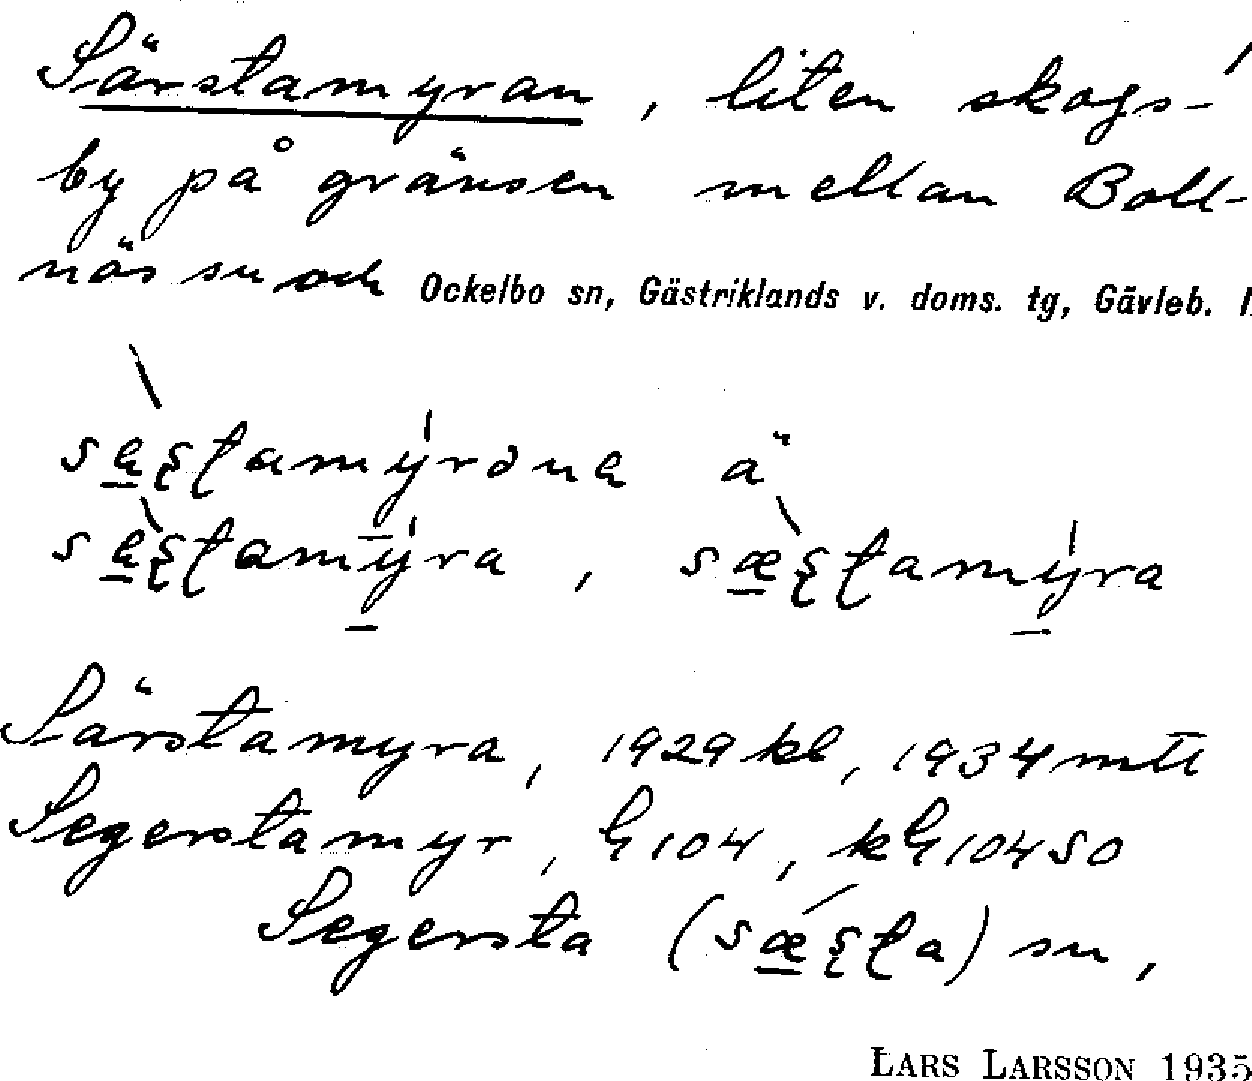 Särstamyran, liten skogs-
by på gränsen mellan Boll-
näs sn och Ockelbo sn, Gästriklands v. doms. tg, Gävleb. l.
sa̲ʂʈamýrɔna ä
sa̲ʂʈamý̲ra, sæ̲ʂʈamý̲ra
Särstamyra, 1929 kb, 1934 mtl
Segerstamyr, h 104, kh 104 SO
Segersta (sǽ̲ʂʈa) sn,
LARS LARSSON 1935